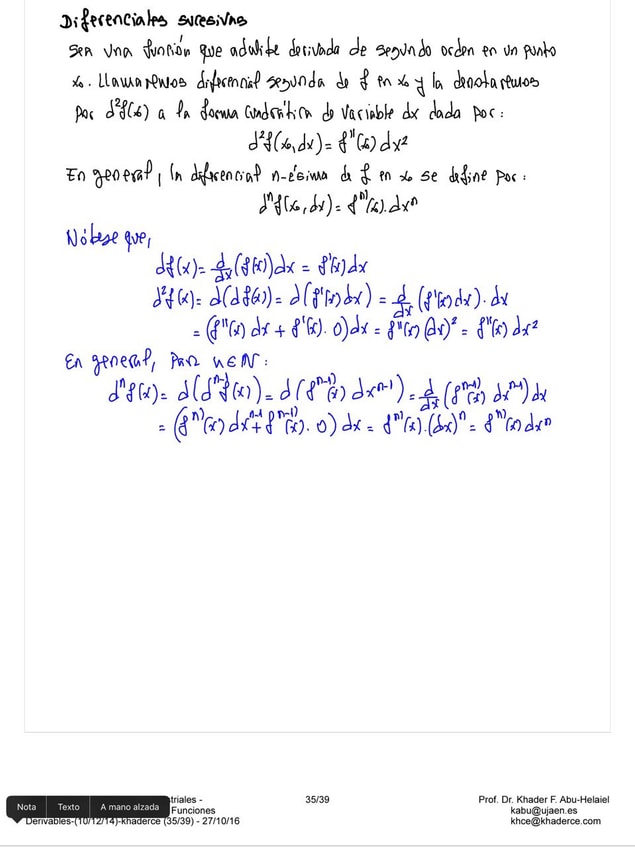 Diferenciales sucesivas
Sea una función que admite derivada de segundo orden en un punto
x₀. Llamaremos diferencial segunda de f en x₀ y la denotaremos
por d²f(x₀) a la forma cuadrática de variable dx dada por:
d²f(x₀,dx)= f''(x₀) dx²
En general, la diferencial n-ésima de f en x₀ se define por:
dⁿf(x₀,dx)= fⁿ⁾(x₀).dxⁿ
Nótese que,
df(x)= d/dx (f(x))dx = f'(x)dx
d²f(x)= d(df(x))= d(f'(x)dx) = d/dx (f'(x)dx).dx
= (f''(x) dx + f'(x). 0)dx = f''(x)(dx)² = f''(x) dx²
En general, para n∈ℕ:
dⁿf(x)= d(dⁿ⁻¹f(x))= d(fⁿ⁻¹⁾(x) dxⁿ⁻¹)= d/dx (fⁿ⁻¹⁾(x) dxⁿ⁻¹)dx
= (fⁿ⁾(x) dxⁿ⁻¹+ fⁿ⁻¹⁾(x). 0) dx = fⁿ⁾(x).(dx)ⁿ = fⁿ⁾(x) dxⁿ
Nota Texto A mano alzada
triales - 35/39 Prof. Dr. Khader F. Abu-Helaiel
Funciones kabu@ujaen.es
Derivables-(10/12/14)-khaderce (35/39) - 27/10/16 khce@khaderce.com